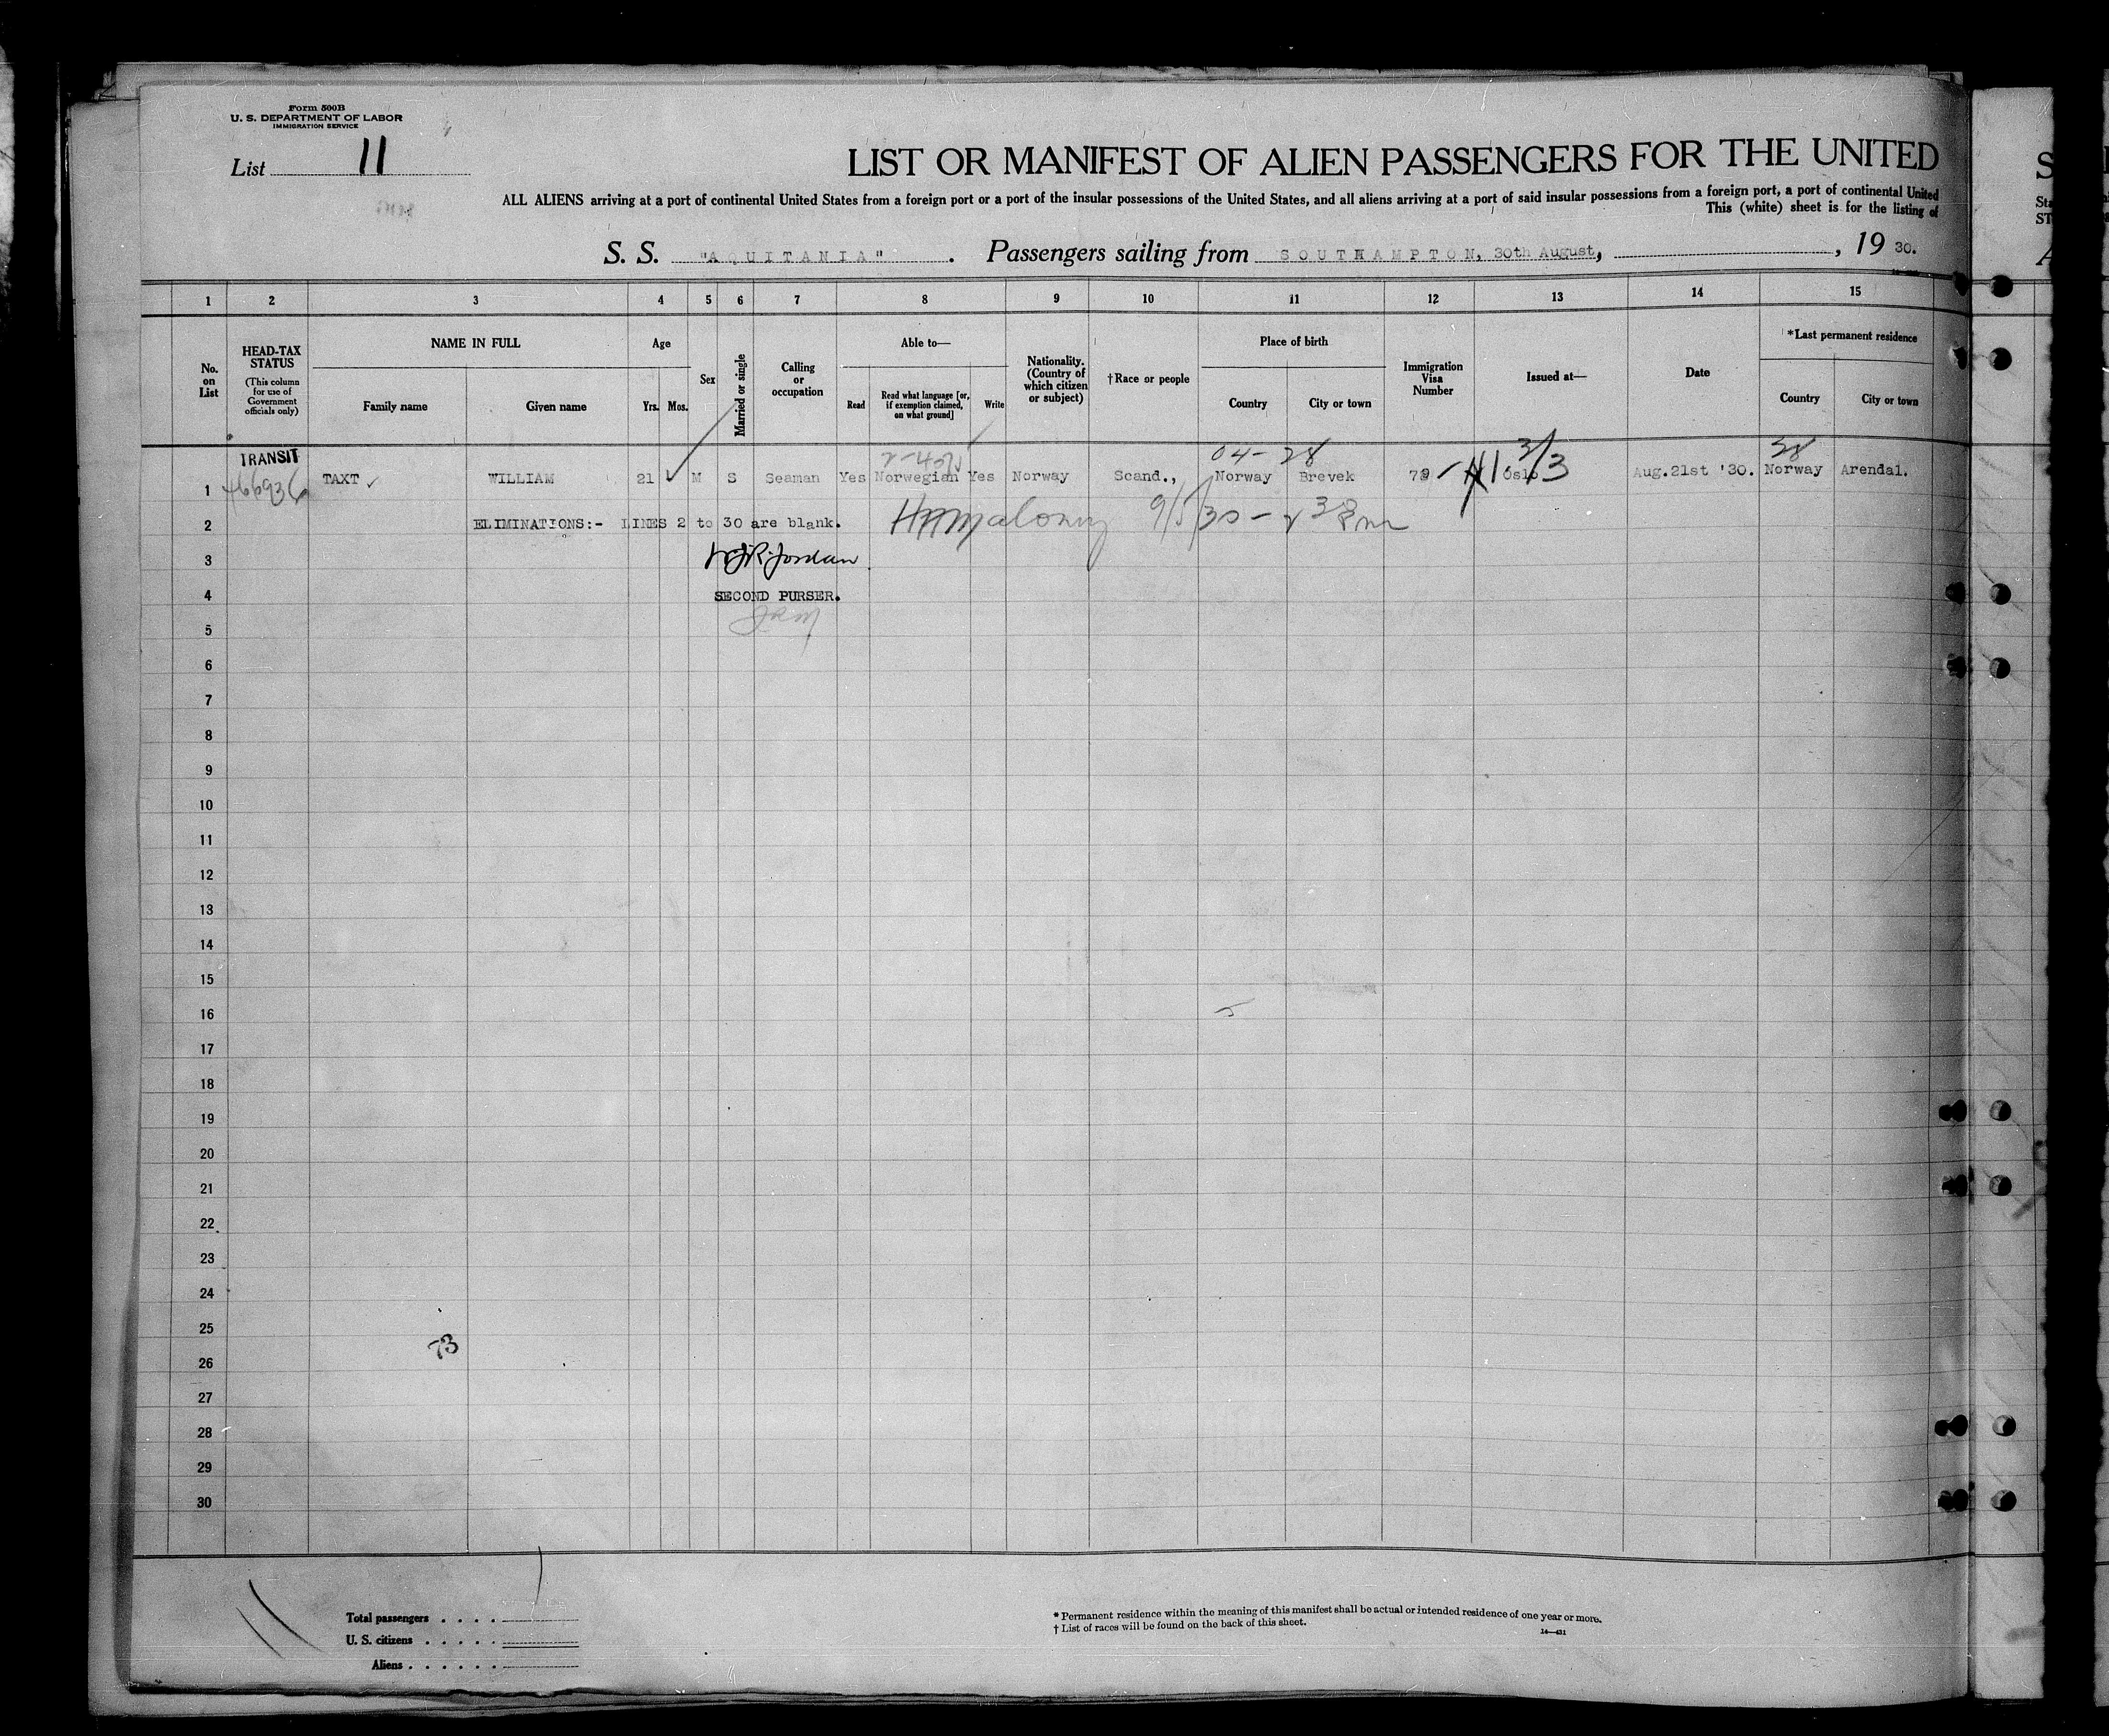 Form 500B
U. S. DEPARTMENT OF LABOR
IMMIGRATION SERVICE
List 11
LIST OR MANIFEST OF ALIEN PASSENGERS FOR THE UNITED
ALL ALIENS arriving at a port of continental United States from a foreign port or a port of the insular possessions of the United States, and all aliens arriving at a port of said insular possessions from a foreign port, a port of continental United
This (white) sheet is for the listing of
S. S. "AQUITANIA" . Passengers sailing from SOUTHAMPTON, 30th August, , 19 30.
1 2 3 4 5 6 7 8 9 10 11 12 13 14 15
No. on List
HEAD-TAX STATUS
(This column for use of Government officials only)
NAME IN FULL
Family name
Given name
Age
Yrs. Mos.
Sex
Married or single
Calling or occupation
Able to—
Read
Read what language [or, if exemption claimed, on what ground]
Write
Nationality. (Country of which citizen or subject)
†Race or people
Place of birth
Country
City or town
Immigration Visa Number
Issued at—
Date
*Last permanent residence
Country
City or town
TRANSIT
04-28
38
1 TAXT WILLIAM 21 M S Seaman Yes Norwegian Yes Norway Scand., Norway Brevek 79 Oslo Aug.21st '30. Norway Arendal.
2 ELIMINATIONS:- LINES 2 to 30 are blank.
9/5/30
3 Jordan
4 SECOND PURSER.
5
6
7
8
9
10
11
12
13
14
15
16
17
18
19
20
21
22
23
24
25
73
26
27
28
29
30
Total passengers . . . .
U. S. citizens . . . . .
Aliens . . . . . .
* Permanent residence within the meaning of this manifest shall be actual or intended residence of one year or more.
† List of races will be found on the back of this sheet.
14—431